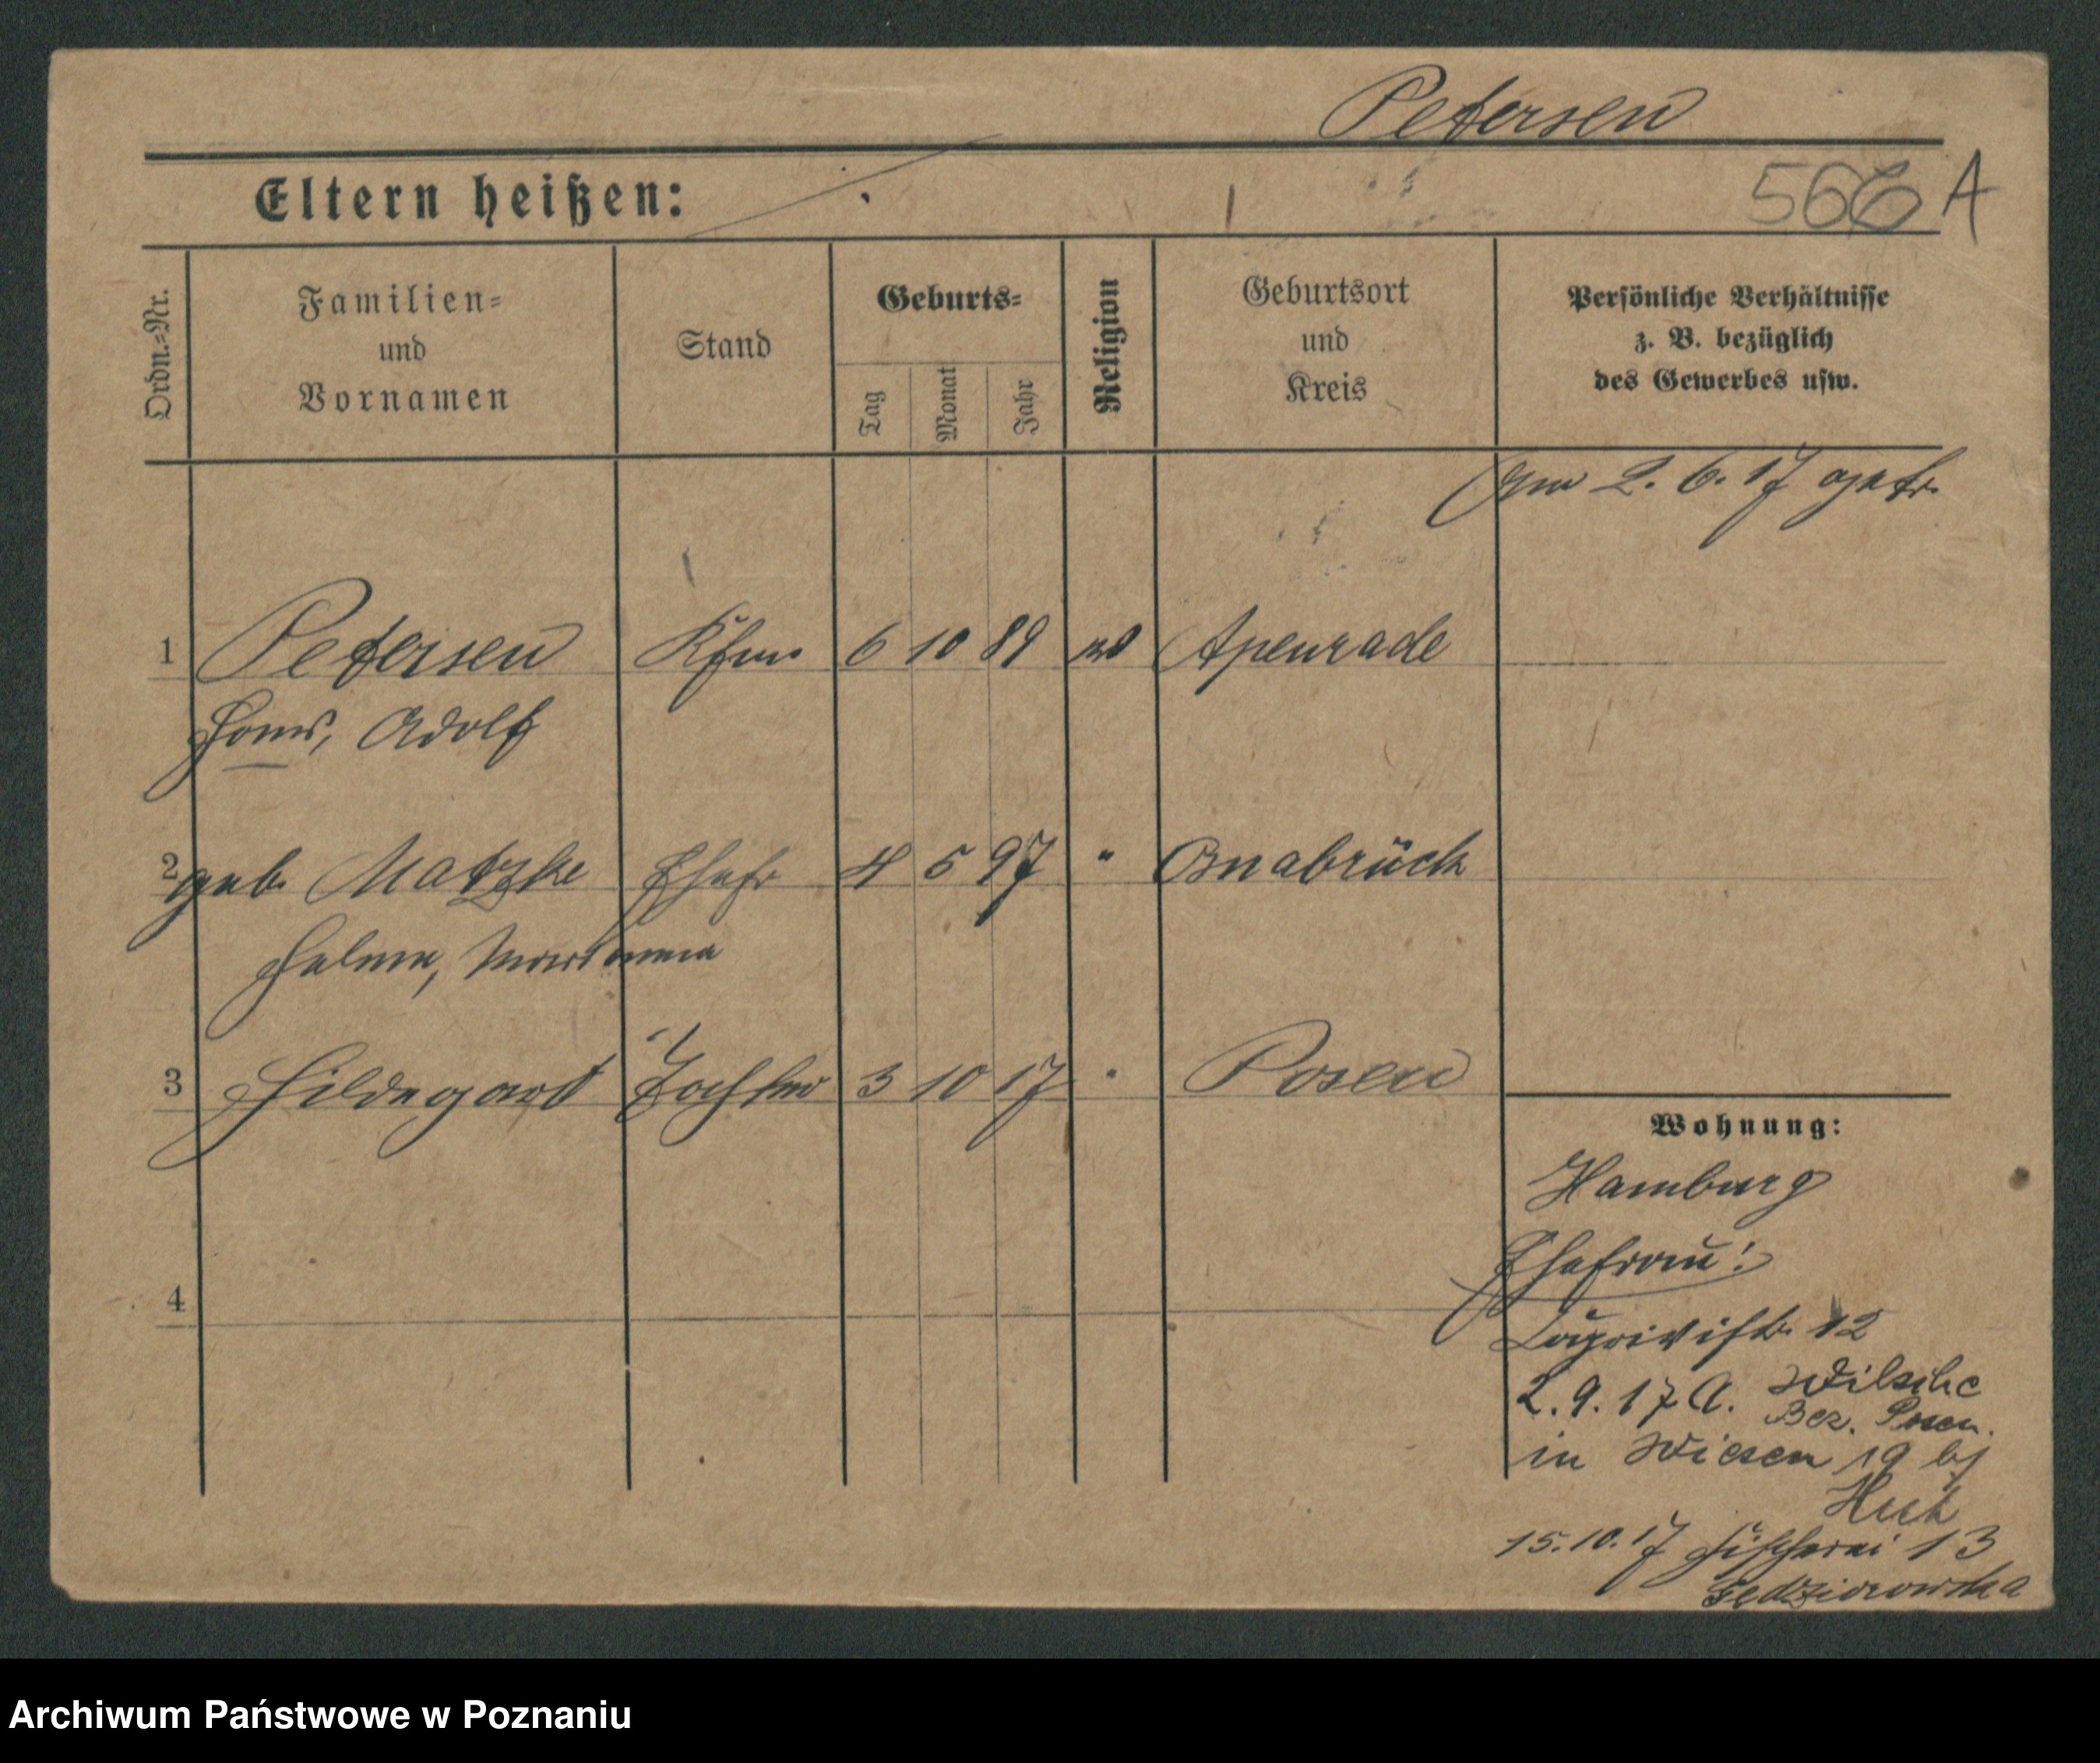 Petersen
Eltern heißen:
566 A
Ordn.=Nr.
Familien=
und
Vornamen
Stand
Geburts=
Tag
Monat
Jahr
Religion
Geburtsort
und
Kreis
Persönliche Verhältnisse
z. B. bezüglich
des Gewerbes usw.
Am 2. 6. 17 getr.
1 Petersen Kfm. 6 10 89 Apenrade
Hans, Adolf
2 geb. Matzke Ehefr 4 5 97 " Osnabrück
Helma,
3 Hildegard Tochter 3 10 17 " Posen
Wohnung:
Hamburg
Ehefrau:
12
2. 9. 17 A.
Bez. Posen.
in Wiesen 19 bj
15. 10. 17 Fischerei 13
4
Archiwum Państwowe w Poznaniu